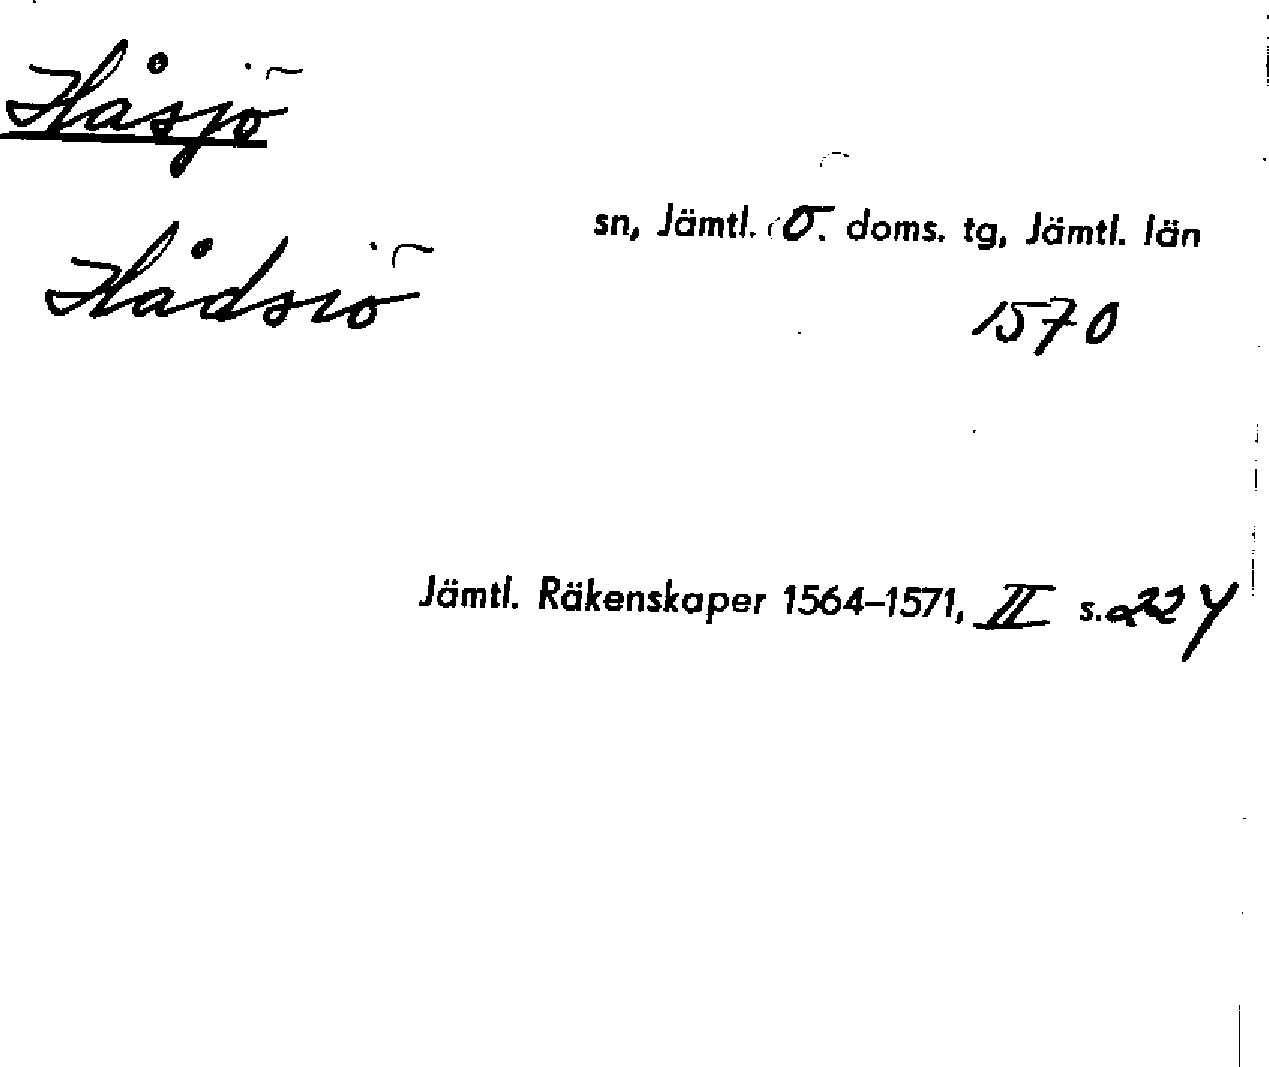 Håsjö
sn, Jämtl. Ö. doms. tg, Jämtl. län
Hådsiö
1570
Jämtl. Räkenskaper 1564–1571, II s.